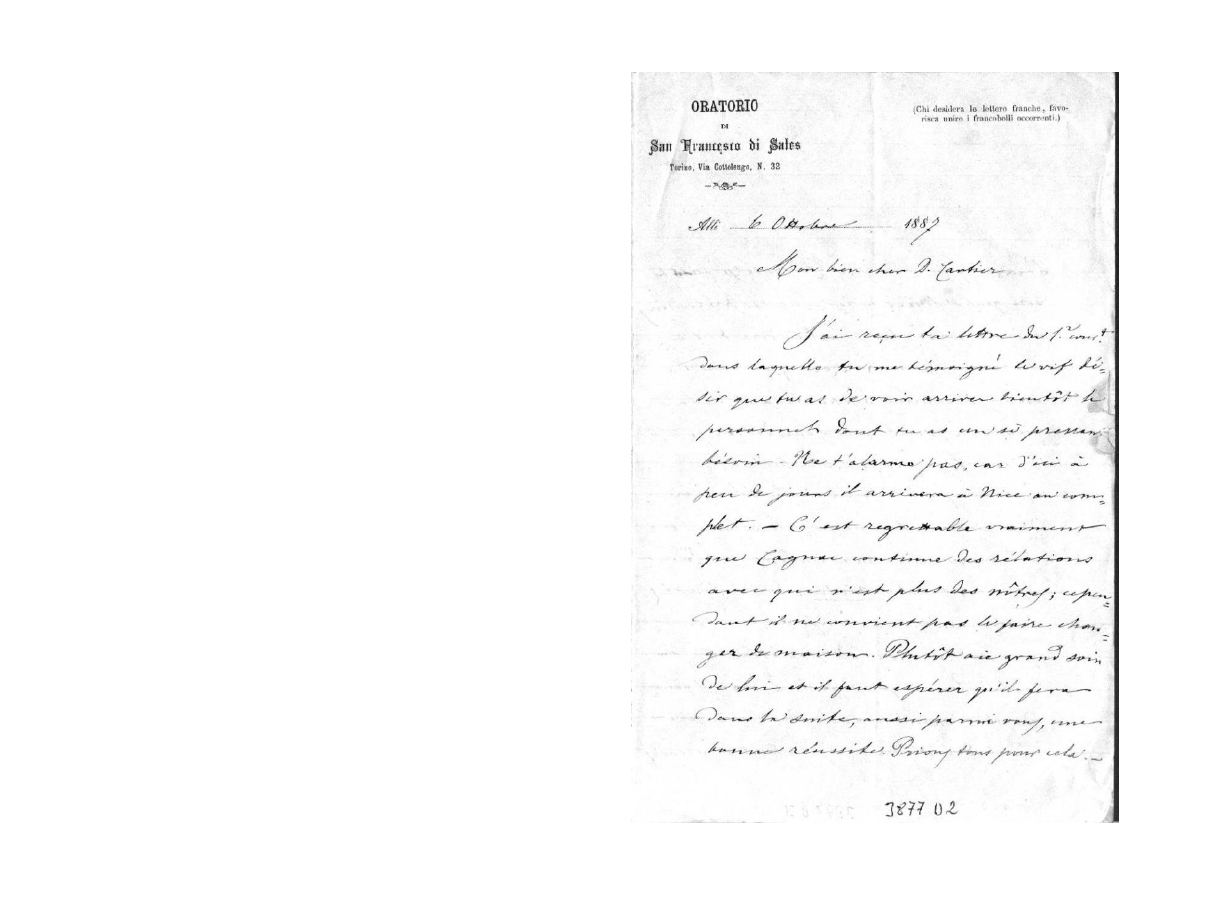 ORATORIO
DI
San Francesco di Sales
Torino, Via Cottolengo, N. 32
(Chi desidera le lettere franche, favo-
risca unire i francobolli occorrenti.)
Alli 6 Ottobre 1887
Mon bien cher D. Cartier
J'ai reçu ta lettre du 1.r cour.t
dans laquelle tu me témoigné le vif dé=
sir que tu as de voir arriver bientôt le
personnel dont tu as un si pressant
bésoin. Ne t'alarme pas, car d'ici à
peu de jours il arrivera à Nice au com=
plet. — C'est regrettable vraiment
que Cagnac continue des rélations
avec qui n'est plus des nôtres; cepen=
dant il ne convient pas le faire chan=
ger de maison. Plutôt aie grand soin
de lui et il faut espérer qu'il fera
dans la suite, aussi parmi vous, une
bonne réussite. Prions tous pour cela. —
3877 02